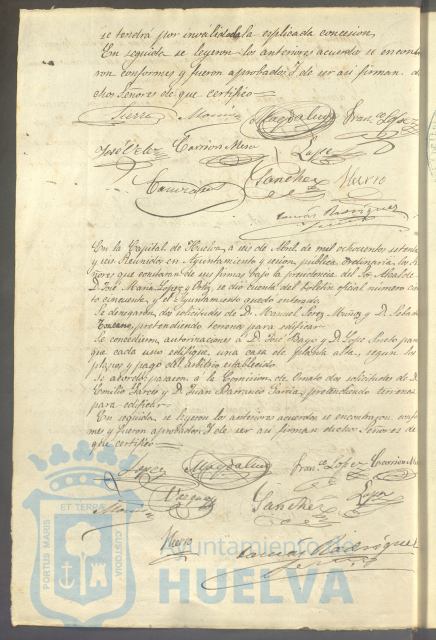 se tendrá por invalidada la esplicada concesion
En seguida se leyeron los anteriores acuerdos se encontra
ron conformes y fueron aprobados. Y de ser asi firman di
chos Señores de que certifico
Sierra Magdaleno Fran.co Lopez
José Velez Carrion Mero Lope
Sanchez Nuevo
Rodriguez
En la Capital de Huelva, á seis de Abril de mil ochocientos setenta
y seis Reunidos en Ayuntamiento y sesion publica ordinaria los Se
ñores que constan de sus firmas bajo la presidencia del Sr. Alcalde
D. José Maria Lopez y Ortiz, se dió cuenta del boletin oficial numero cien
to cincuenta, y el Ayuntamiento quedó enterado
Se denegaron dos solicitudes de D. Manuel Perez Muñoz y D. Sebastian
Toscano, pretendiendo terreno para edificar
Se concedieron autorizaciones á D. José Bago y D. Lope para
que cada uno edifique una casa de planta alta, segun los
planos y pago del arbitrio establecido
Se acordó pasaran á la Comision de Ornato dos solicitudes de D.
Emilio Garcés y D. Juan Barranco Garcia, pretendiendo terrenos
para edificar
En seguida se leyeron los anteriores acuerdos se encontraron confor
mes y fueron aprobados. Y de ser asi firman dichos Señores de
que certifico
Lopez Magdaleno Fran.co Lopez Carrion Mero
Vazquez Sanchez Lope
Nuevo Rodriguez
PORTUS MARIS ET TERRAE CUSTODIA
Ayuntamiento
HUELVA